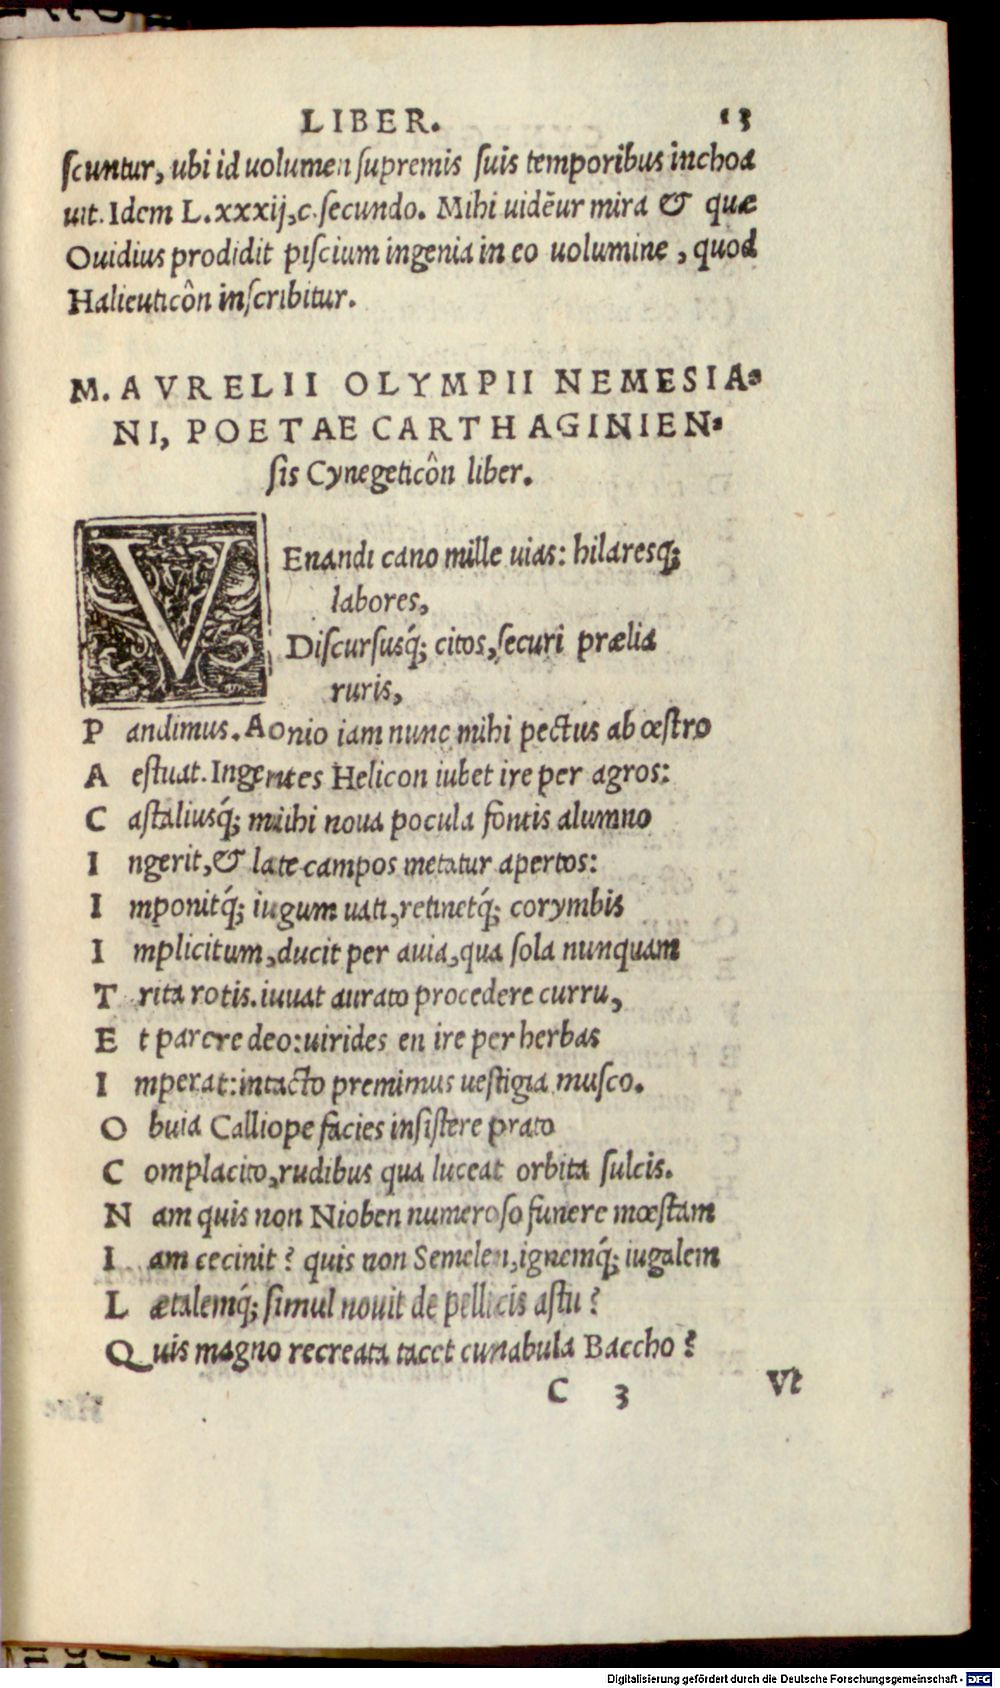 LIBER. 13
ſcuntur, ubi id uolumen ſupremis ſuis temporibus inchoa
uit. Idem L.xxxij,c.ſecundo. Mihi uidẽur mira & quæ
Ouidius prodidit piſcium ingenia in eo uolumine, quod
Halieuticôn inſcribitur.
M. AVRELII OLYMPII NEMESIA⸗
NI, POETAE CARTHAGINIEN⸗
ſis Cynegeticôn liber.
VEnandi cano mille uias: hilaresq;
labores,
Diſcurſusq́; citos, ſecuri prælia
ruris,
P andimus. Aonio iam nunc mihi pectus ab œſtro
A eſtuat. Ingentes Helicon iubet ire per agros:
C aſtaliusq́; mihi noua pocula fontis alumno
I ngerit, & late campos metatur apertos:
I mponitq́; iugum uati, retinetq́; corymbis
I mplicitum, ducit per auia, qua ſola nunquam
T rita rotis. iuuat aurato procedere curru,
E t parere deo: uirides en ire per herbas
I mperat: intacto premimus ueſtigia muſco.
O buia Calliope facies inſiſtere prato
C omplacito, rudibus qua luceat orbita ſulcis.
N am quis non Nioben numeroſo funere mœſtam
I am cecinit? quis non Semelen, ignemq́; iugalem
L ætalemq́; ſimul nouit de pellicis aſtu?
Q uis magno recreata tacet cunabula Baccho?
C 3 Vt
Digitalisierung gefördert durch die Deutsche Forschungsgemeinschaft - DFG